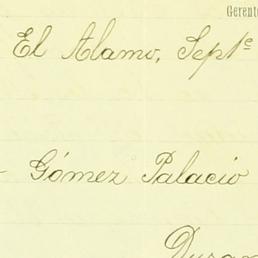 Gerente
El Alamo, Septe
Gómez Palacio
Duran